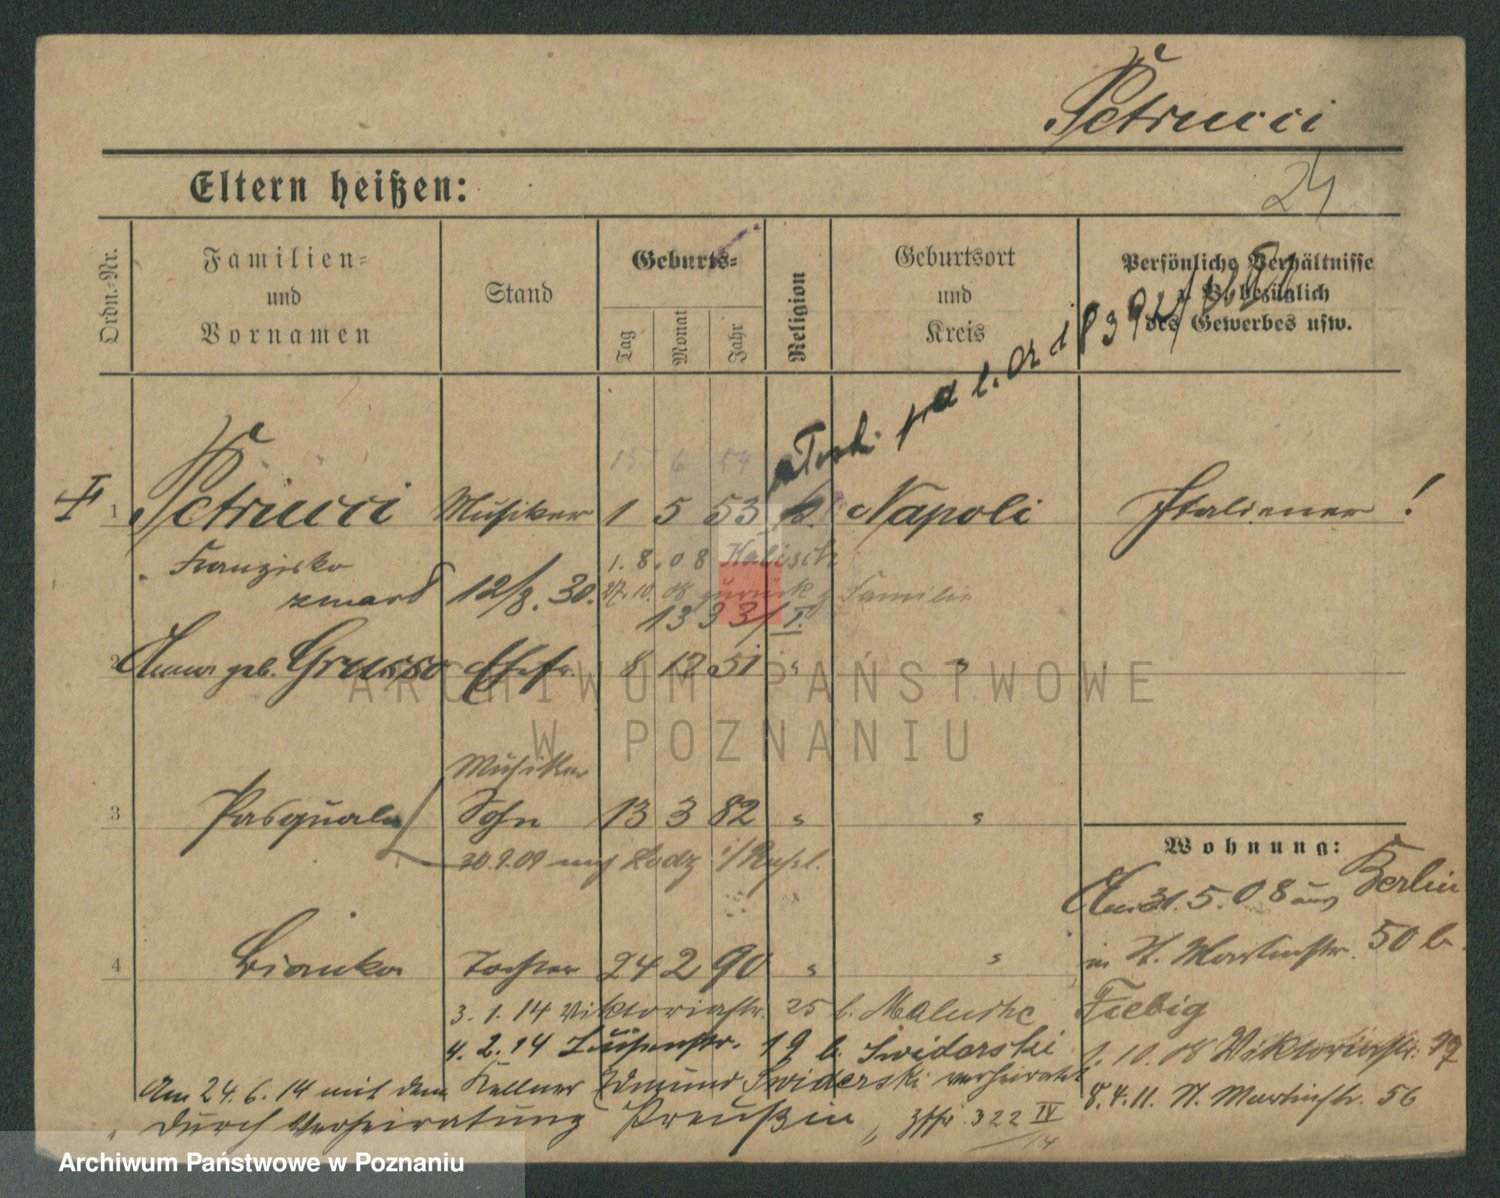 Petrucci
24
Eltern heißen:
Ordn.-Nr.
Familien-
und
Vornamen
Stand
Geburts-
Tag
Monat
Jahr
Religion
Geburtsort
und
Kreis
Persönliche Verhältnisse
bezüglich
des Gewerbes usw.
15 6 54
1 Petrucci Musiker 1 5 53 k. Napoli Italiener!
Franzisko 1.8.08 Kalisch
zmarł 12/8.30. 27.10.08 zurück z Familie
13 3 31 I.
2 Anna geb. Grusso Ehefr. 8 12 51 " "
ARCHIWUM PAŃSTWOWE
W POZNANIU
Musiker
3 Pasquale Sohn 13 3 82 " "
30.9.09 nach Lodz i/Russl.
Wohnung:
Am 31.5.08 aus Berlin
4 Bianka Tochter 24 2 90 " "
in St. Martinstr. 50 b.
Fiebig
3.1.14 Viktoriastr. 25 b.
4.2.14 Luisenstr. 19 b. Swiderski
1.10.08 Viktoriastr.
Am 24.6.14 mit dem Kellner Edmund Swiderski verheiratet
8.4.11. St. Martinstr. 56
durch Verheiratung Preußin 322 IV
14
Archiwum Państwowe w Poznaniu